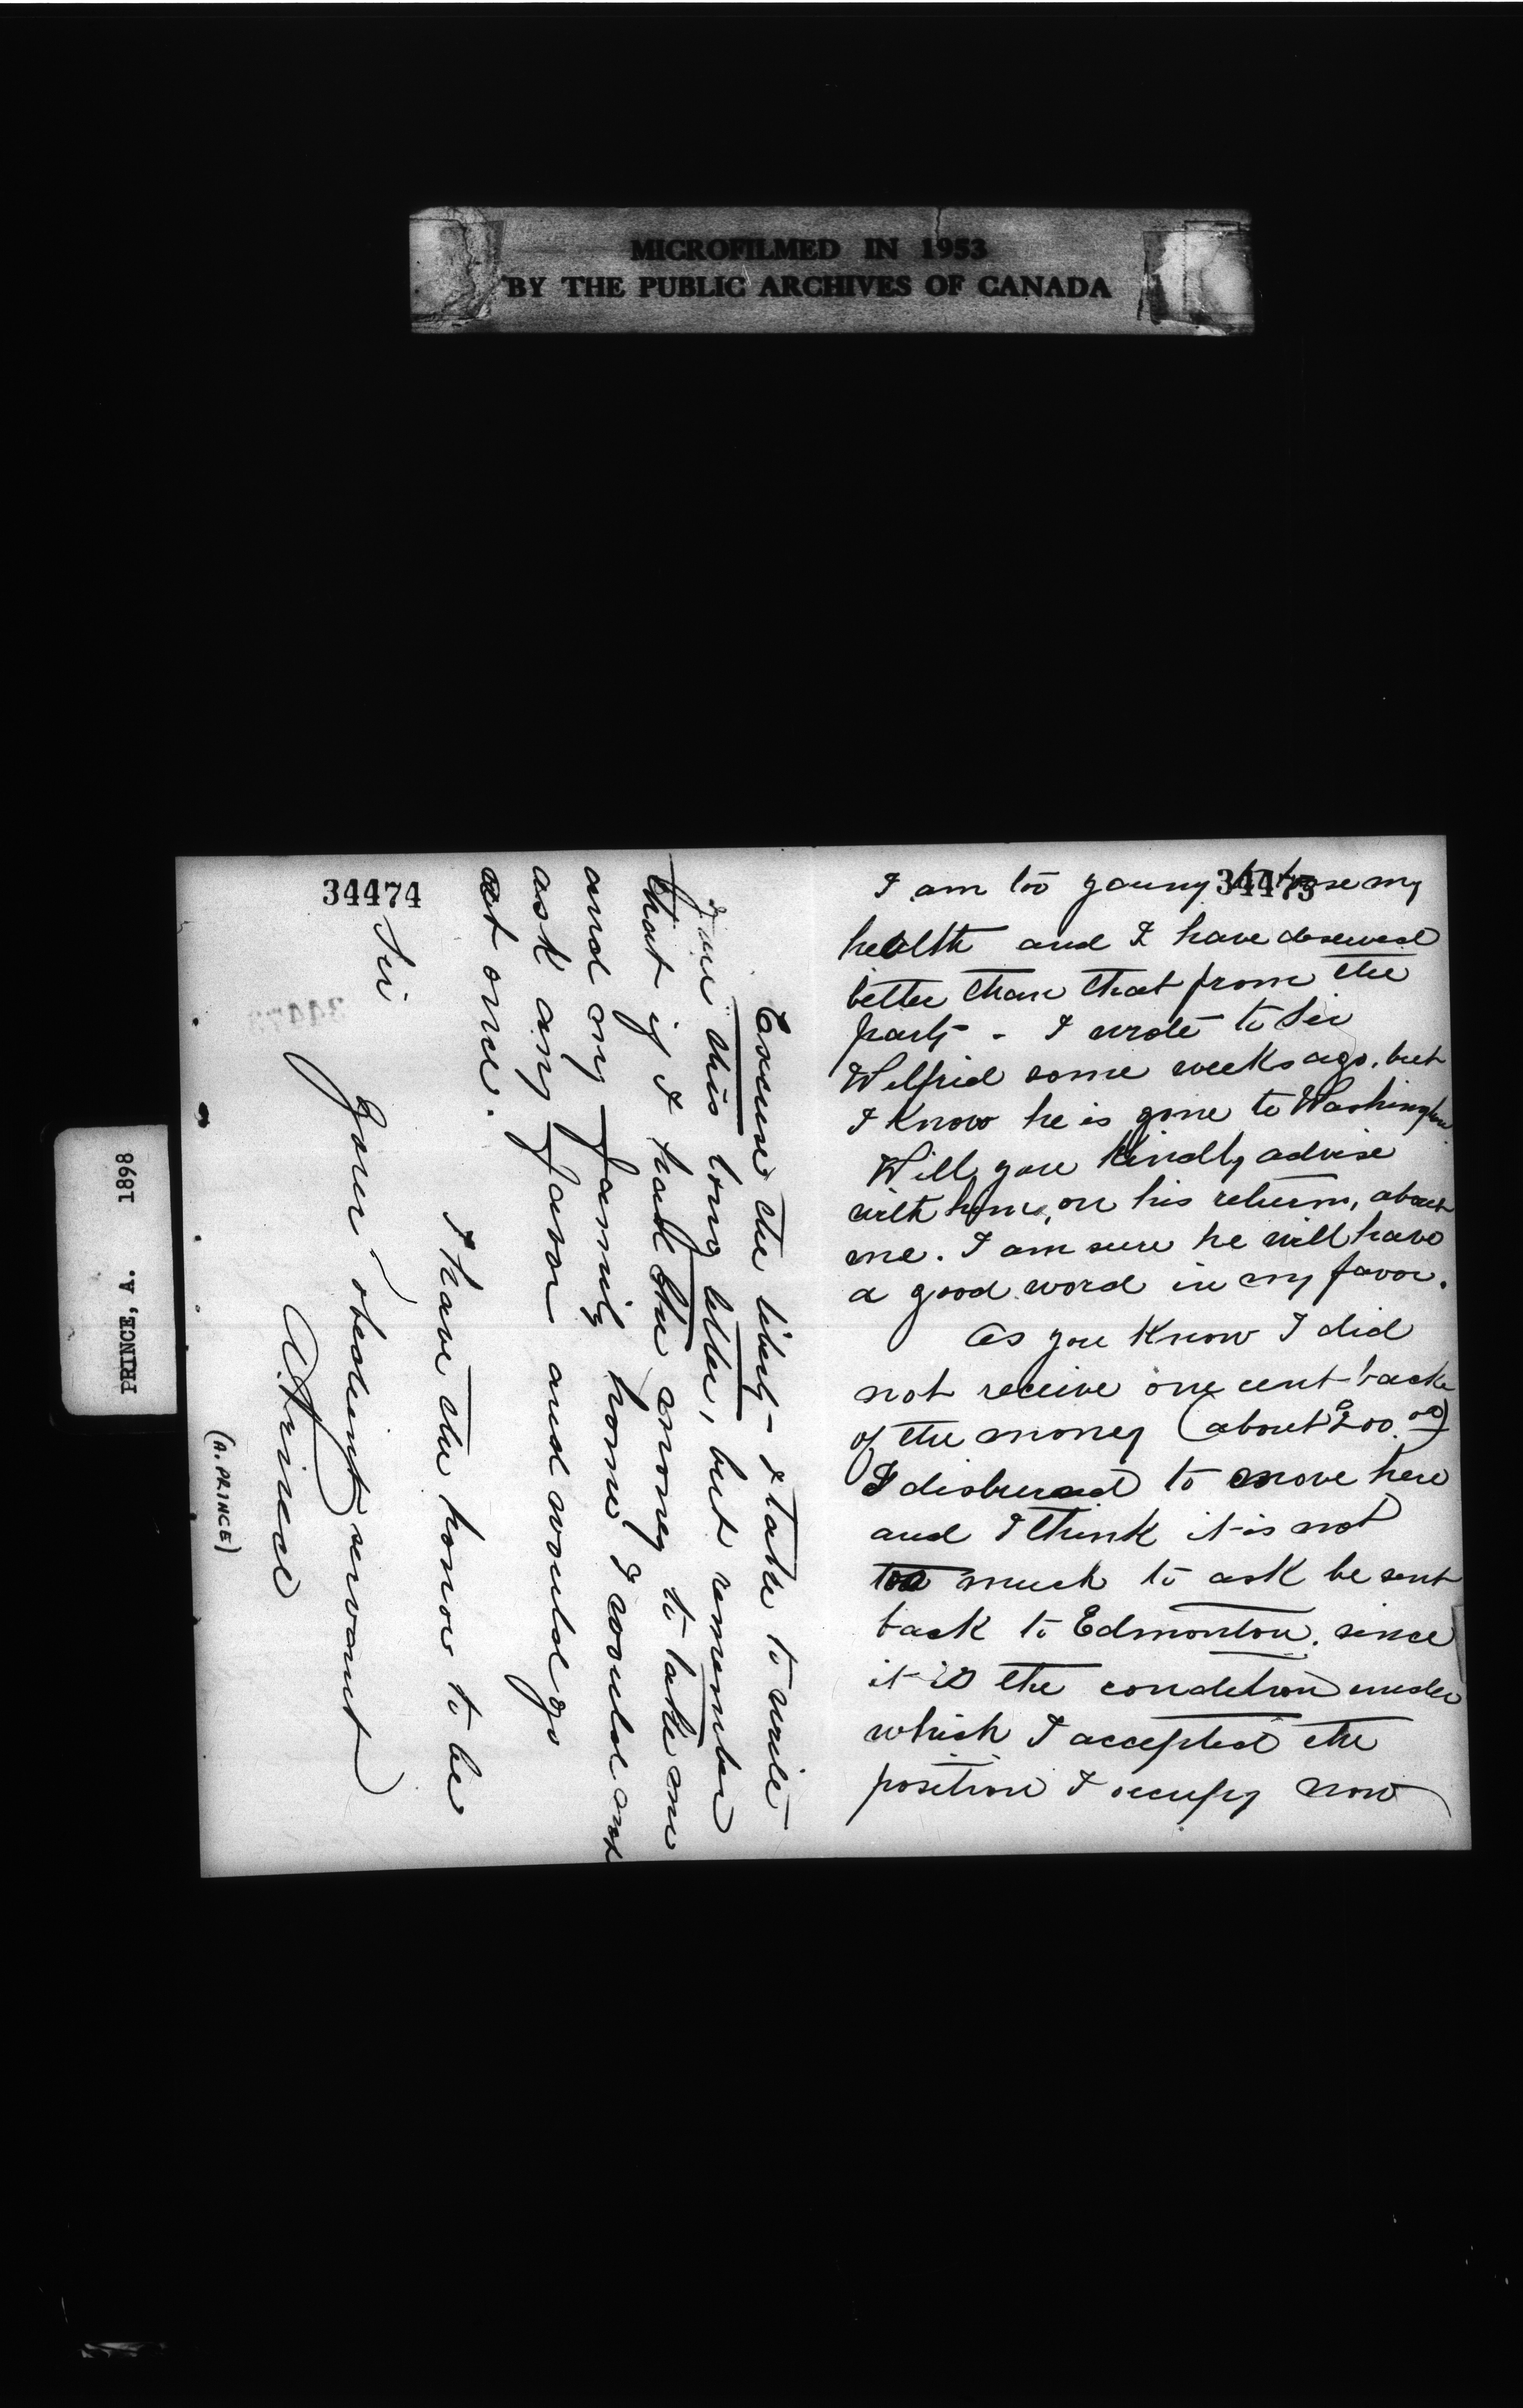 MICROFILMED IN 1953
BY THE PUBLIC ARCHIVES OF CANADA
PRINCE, A. 1898
34473
I am too young to lose my
health and I have deserved
better than that from the
party - I wrote to Sir
Wilfrid some weeks ago, but
I know he is gone to Washington
Will you kindly advise
with him, on his return, about
me. I am sure he will have
a good word in my favor.
As you know I did
not receive one cent back
of the money (about $200.00)
I disbursed to move here
and I think it is not
too much to ask be sent
back to Edmonton. since
it is the condition under
which I accepted the
position I occupy now
34474
Excuse the liberty I take to write
you this long letter, but remember
that if I had the money to take me
and my family home I would not
ask any favor and would go
at once.
I have the honor to be
Sir
Your obedient servant
A. Prince
(A. PRINCE)